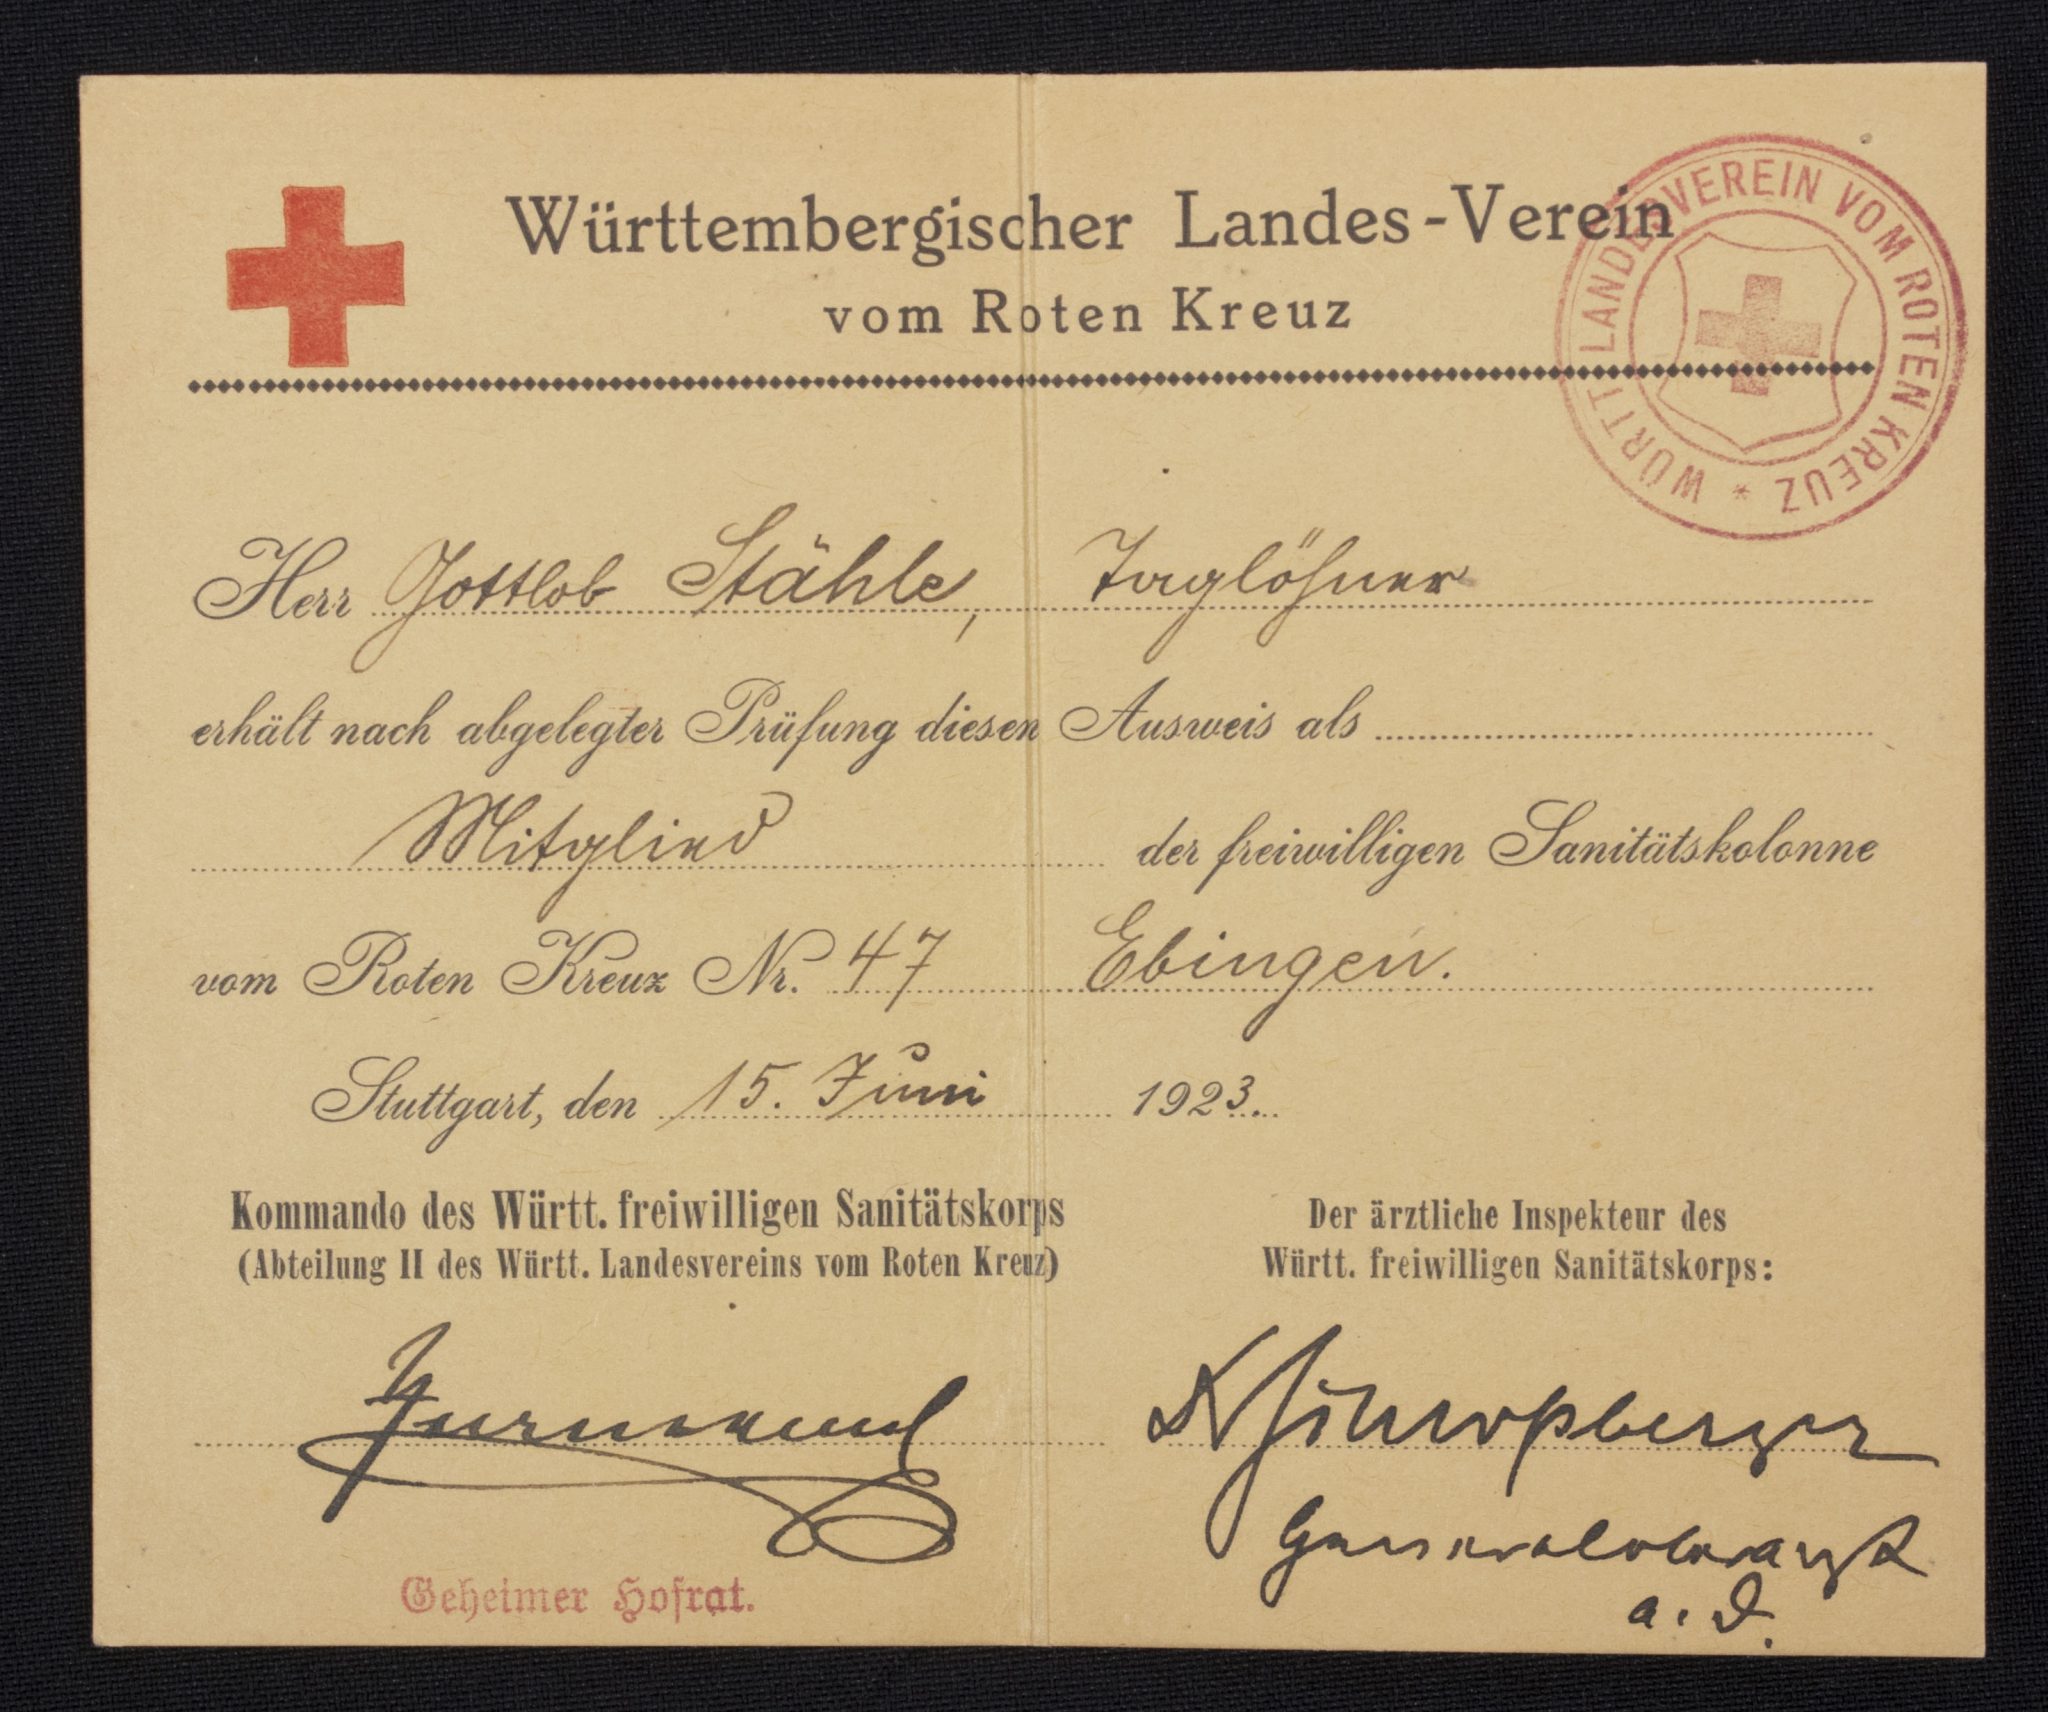 Württembergischer Landes-Verein
vom Roten Kreuz
WÜRTT. LANDESVEREIN VOM ROTEN KREUZ *
Herr Gottlob Stähle, Taglöhner
erhält nach abgelegter Prüfung diesen Ausweis als
Mitglied der freiwilligen Sanitätskolonne
vom Roten Kreuz Nr. 47 Ebingen.
Stuttgart, den 15. Juni 1923.
Kommando des Württ. freiwilligen Sanitätskorps
(Abteilung II des Württ. Landesvereins vom Roten Kreuz)
Der ärztliche Inspekteur des
Württ. freiwilligen Sanitätskorps:
Generaloberarzt
a. D.
Geheimer Hofrat.